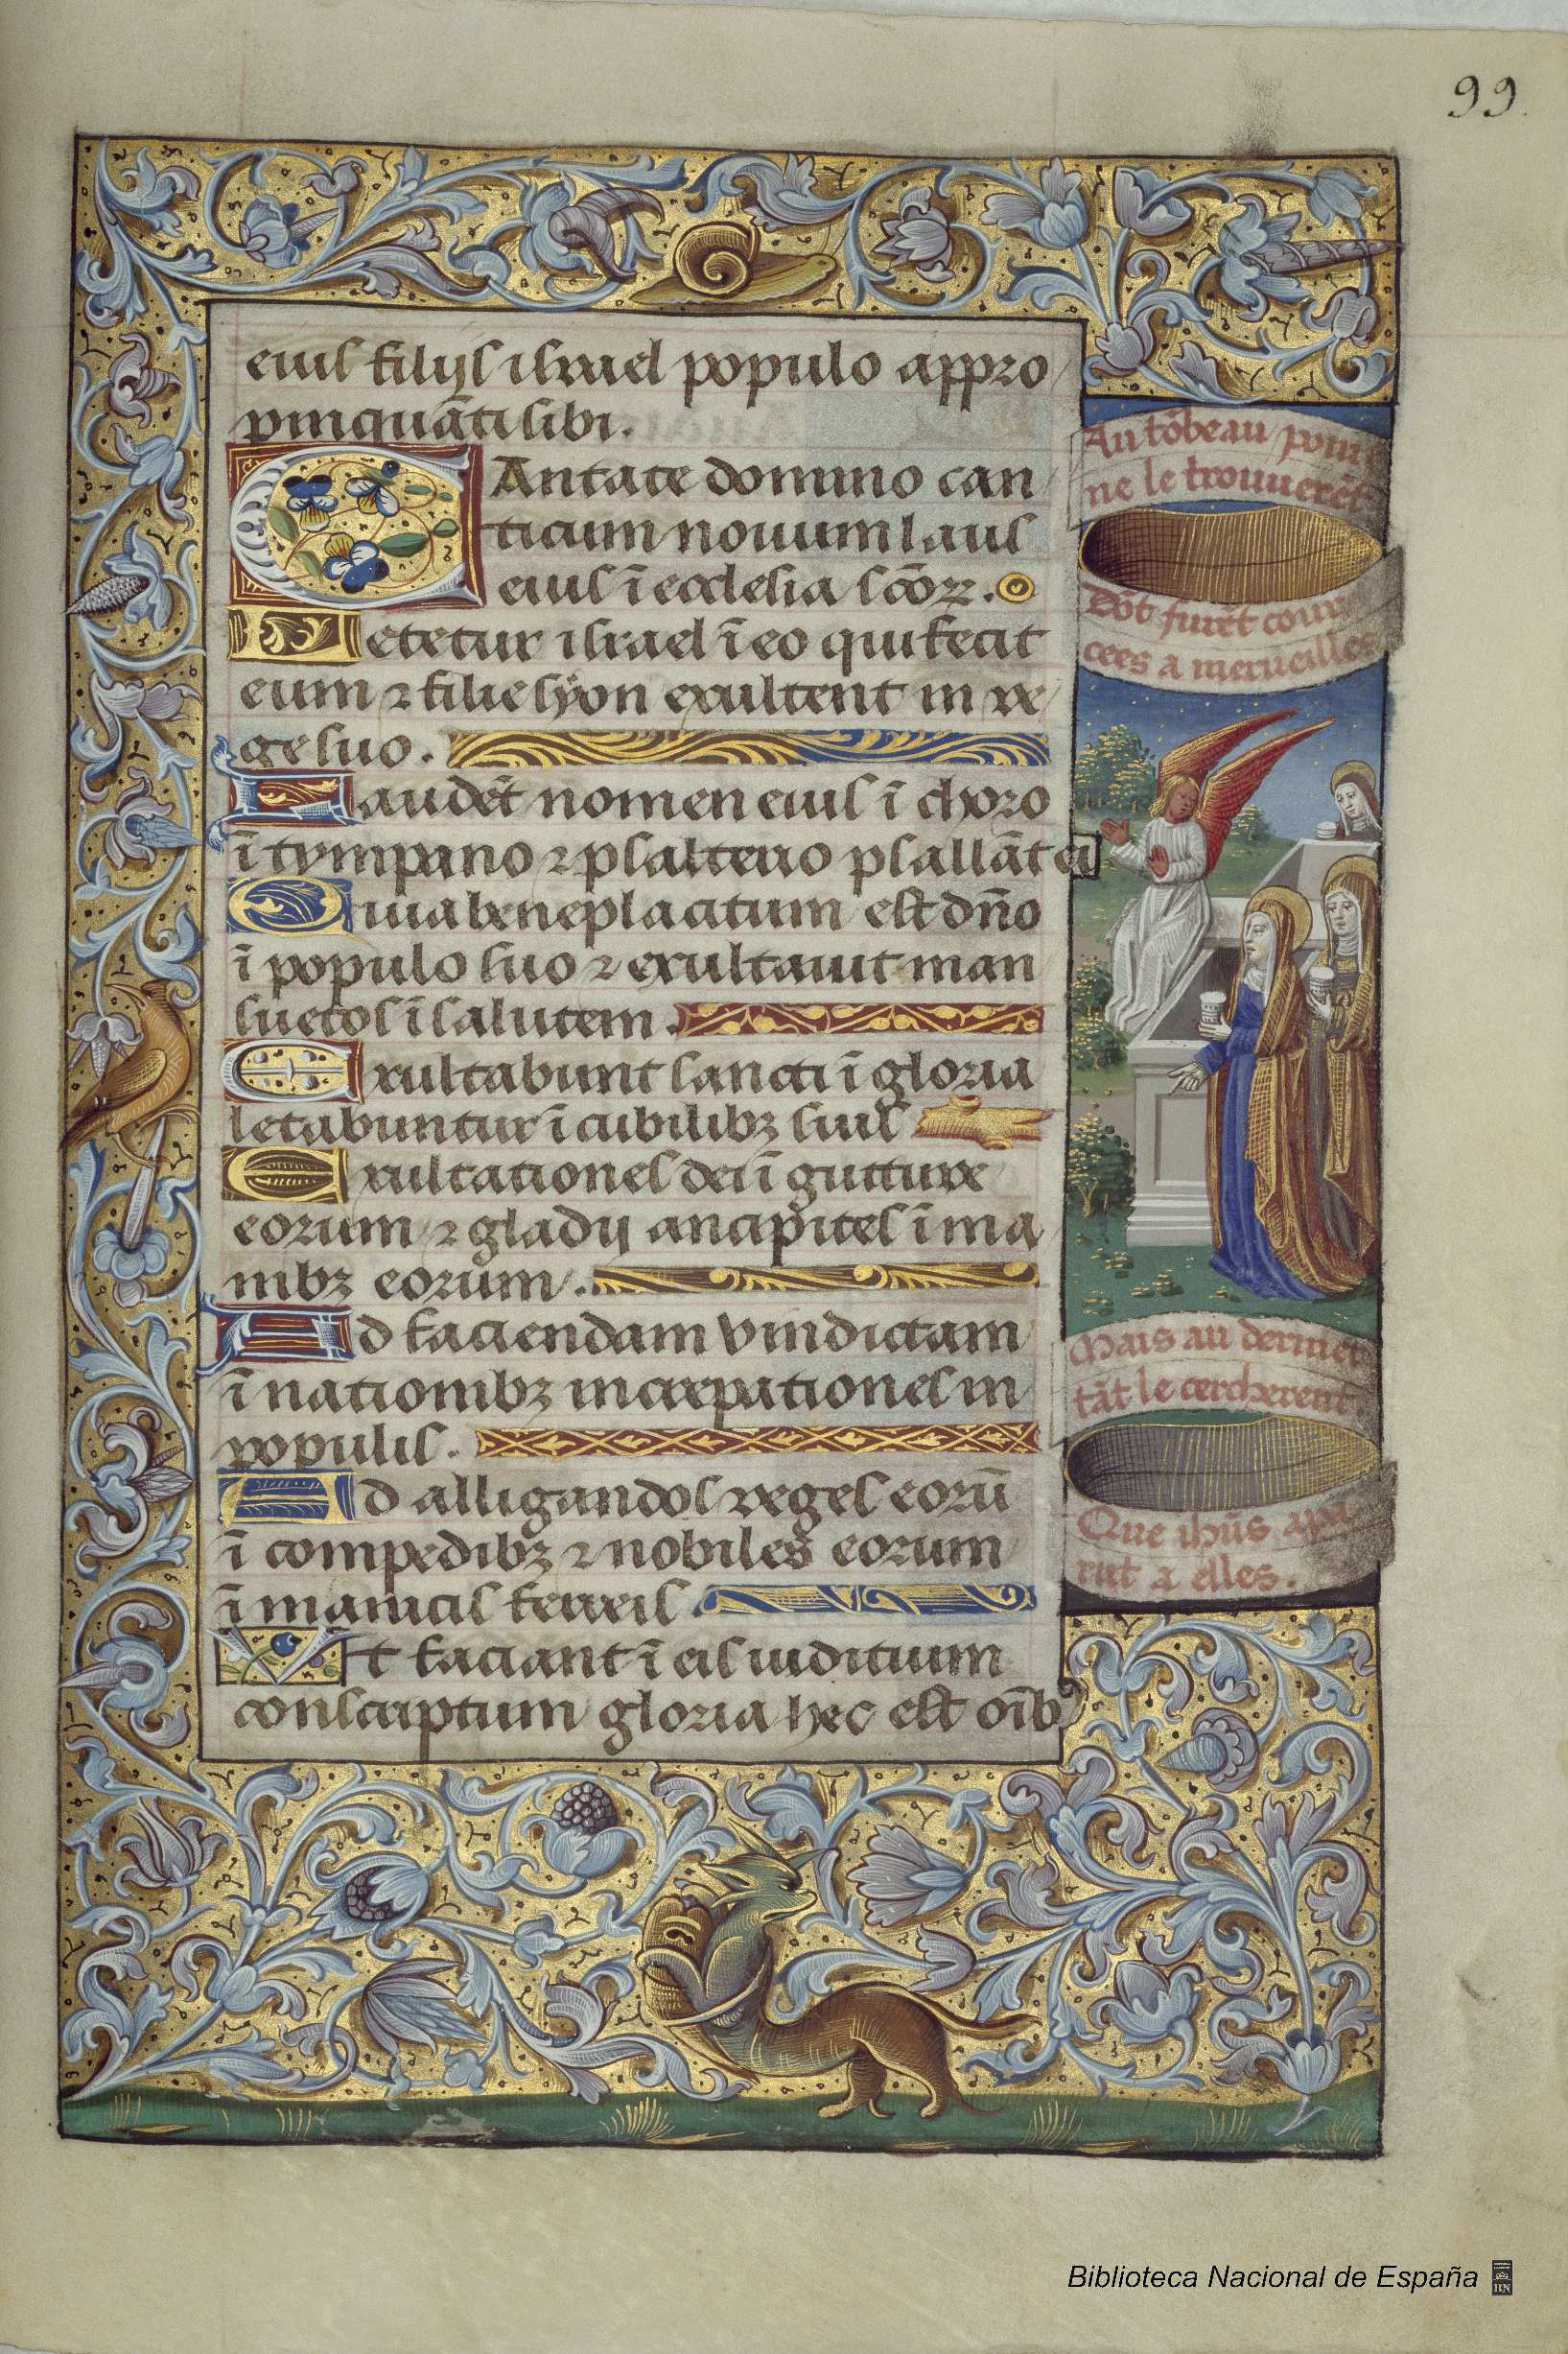 99.
eius filijs israel populo appro
pinquāti sibi.
CAntate domino can
ticum nouum laus
eius ī ecclesia scōꝝ.
Letetur israel ī eo qui fecit
eum ⁊ filie syon exultent in re
ge suo.
Laudēt nomen eius ī choro
ī tympano ⁊ psalterio psallāt ei
Quia beneplacitum est dn̄o
ī populo suo ⁊ exultauit man
suetos ī salutem.
Exultabunt sancti ī gloria
letabuntur ī cubilibꝫ suis
Exultationes dei ī gutture
eorum ⁊ gladij ancipites ī ma
nibꝫ eorum.
Ad faciendam vindictam
ī nationibꝫ increpationes in
populis.
Ad alligandos reges eorū
ī compedibꝫ ⁊ nobiles eorum
ī manicis ferreis
Vt faciant ī eis iuditium
conscriptum gloria hec est oīb⁹
Au tōbeau poin
ne le trouuerēt
Dōt furēt cour
cees a merueilles
Mais au dernier
tāt le cercherent
Que ihūs apa
rut a elles.
Biblioteca Nacional de España
BN